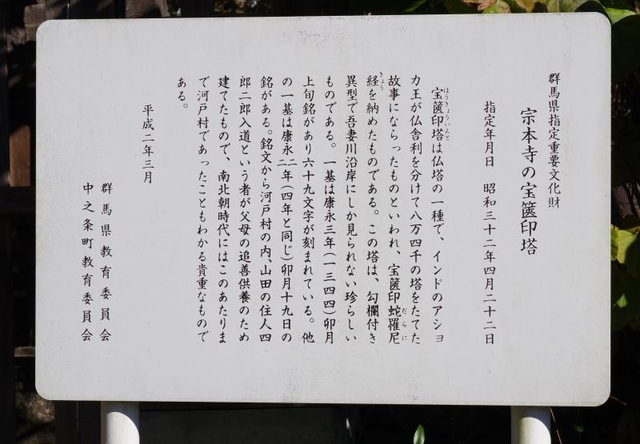 群馬県指定重要文化財
宗本寺の宝篋印塔
指定年月日　昭和三十二年四月二十二日
宝篋印塔は仏塔の一種で、インドのアショ
カ王が仏舎利を分けて八万四千の塔をたてた
故事にならったものといわれ、宝篋印蛇羅尼
経を納めたものである。この塔は、勾欄付き
異型で吾妻川沿岸にしか見られない珍らしい
ものである。一基は康永三年(一三四四)卯月
上旬銘があり六十九文字が刻まれている。他
の一基は康永二二年(四年と同じ)卯月十九日の
銘がある。銘文から河戸村の内、山田の住人四
郎二郎入道という者が父母の追善供養のため
建てたもので、南北朝時代にはこのあたりま
で河戸村であったこともわかる貴重なもので
ある。
平成二年三月
群馬県教育委員会
中之条町教育委員会